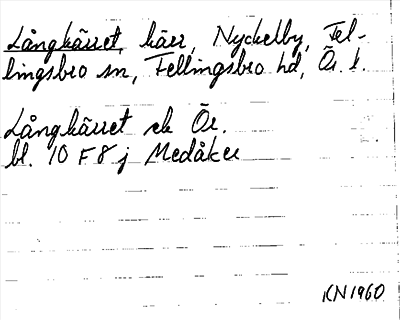 Långkärret, kärr, Nyckelby, Fel-
lingsbro sn, Fellingsbro hd, Ör. l.
Långkärret ek Ör.
bl. 10 F 8 j Medåker
KN1960